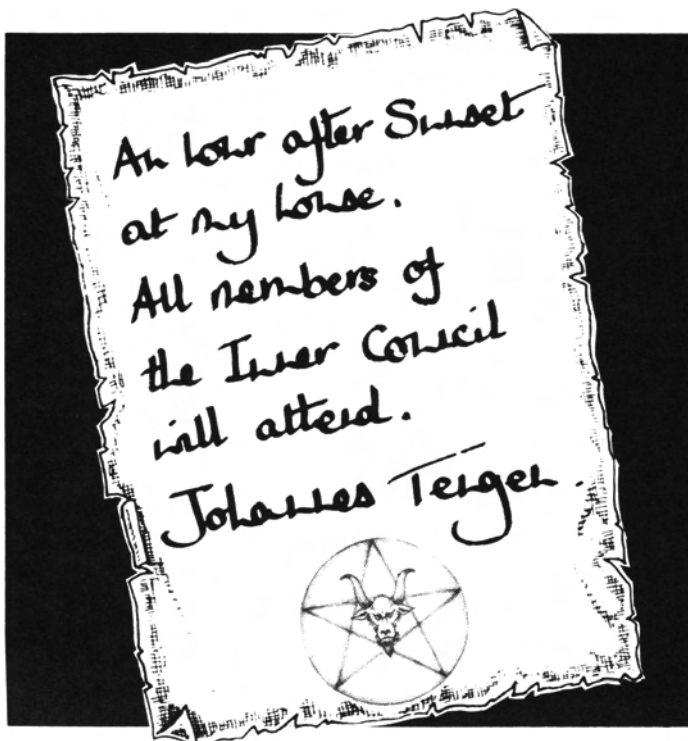 An hour after Sunset
at my house.
All members of
the Inner Council
will attend.
Johannes Teugen.